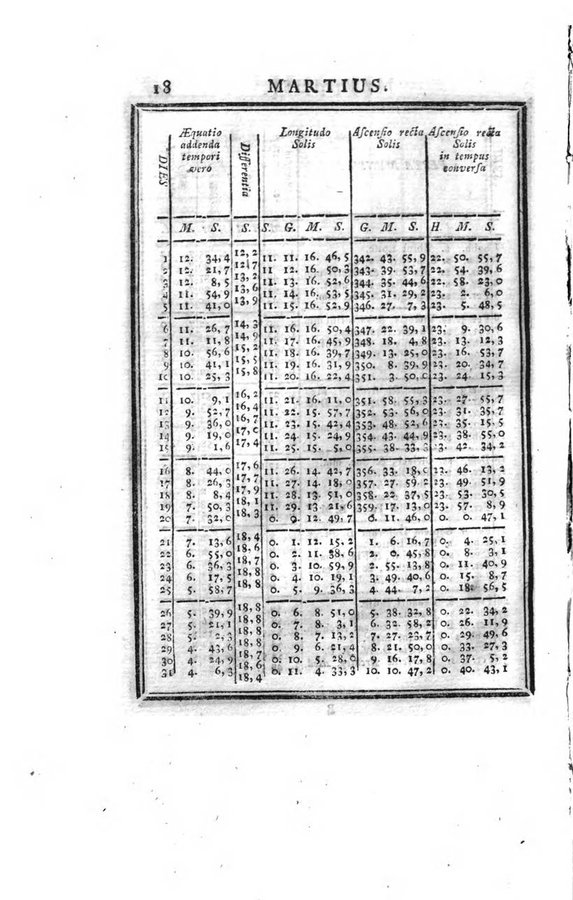 18 MARTIUS.
DIES
Æquatio addenda tempori vero
Differentia
Longitudo Solis
Ascensio recta Solis
Ascensio recta Solis in tempus conversa
M. S. S. S. G. M. S. G. M. S. H M. S.
1 12. 34,4 12,2 11. 11. 16. 46,5 342. 43. 55,9 22. 50. 55,7
2 12. 21,7 12,7 11 12. 16. 50,3 343. 39. 53,7 22. 54. 39,6
3 12. 8,5 13,2 11. 13. 16. 52,6 344. 35. 44,6 22. 58. 23,0
4 11. 54,9 13,6 11. 14. 16. 53,5 345. 31. 29,2 23. 2. 6,0
5 11. 41,0 13,9 11. 15. 16. 52,9 346. 27. 7,3 23. 5. 48,5
6 11. 26,7 14,3 11. 16. 16. 50,4 347. 22. 39,1 23. 9. 30,6
7 11. 11,8 14,9 11. 17. 16. 45,9 348. 18. 4,8 23. 13. 12,3
8 10. 56,6 15,2 11. 18. 16. 39,7 349. 13. 25,0 23. 16. 53,7
9 10. 41,1 15,5 11. 19. 16. 31,9 350. 8. 39,9 23. 20. 34,7
10 10. 25,3 15,8 11. 20. 16. 22,4 351. 3. 50,0 23. 24. 15,3
11 10. 9,1 16,2 11. 21. 16. 11,0 351. 58. 55,3 23. 27. 55,7
12 9. 52,7 16,4 11. 22. 15. 57,7 352. 53. 56,0 23. 31. 35,7
13 9. 36,0 16,7 11. 23. 15. 42,4 353. 48. 52,6 23. 35. 15,5
14 9. 19,0 17,0 11. 24. 15. 24,9 354. 43. 44,9 23. 38. 55,0
15 9. 1,6 17,4 11. 25. 15. 5,0 355. 38. 33,3 23. 42. 34,2
16 8. 44,0 17,6 11. 26. 14. 42,7 356. 33. 18,0 23. 46. 13,2
17 8. 26,3 17,7 11. 27. 14. 18,0 357. 27. 59,2 23. 49. 51,9
18 8. 8,4 17,9 11. 28. 13. 51,0 358. 22. 37,5 23. 53. 30,5
19 7. 50,3 18,1 11. 29. 13. 21,6 359. 17. 13,0 23. 57. 8,9
20 7. 32,0 18,3 0. 0. 12. 49,7 0. 11. 46,0 0. 0. 47,1
21 7. 13,6 18,4 0. 1. 12. 15,2 1. 6. 16,7 0. 4. 25,1
22 6. 55,0 18,6 0. 2. 11. 38,6 2. 0. 45,8 0. 8. 3,1
23 6. 36,3 18,7 0. 3. 10. 59,9 2. 55. 13,8 0. 11. 40,9
24 6. 17,5 18,8 0. 4. 10. 19,1 3. 49. 40,6 0. 15. 8,7
25 5. 58,7 18,8 0. 5. 9. 36,3 4. 44. 7,2 0. 18. 56,5
26 5. 39,9 18,8 0. 6. 8. 51,0 5. 38. 32,8 0. 22. 34,2
27 5. 21,1 18,8 0. 7. 8. 3,1 6. 32. 58,2 0. 26. 11,9
28 5. 2,3 18,8 0. 8. 7. 13,2 7. 27. 23,7 0. 29. 49,6
29 4. 43,6 18,7 0. 9. 6. 21,4 8. 21. 50,0 0. 33. 27,3
30 4. 24,9 18,6 0. 10. 5. 28,0 9. 16. 17,8 0. 37. 5,2
31 4. 6,3 18,4 0. 11. 4. 33,3 10. 10. 47,2 0. 40. 43,1